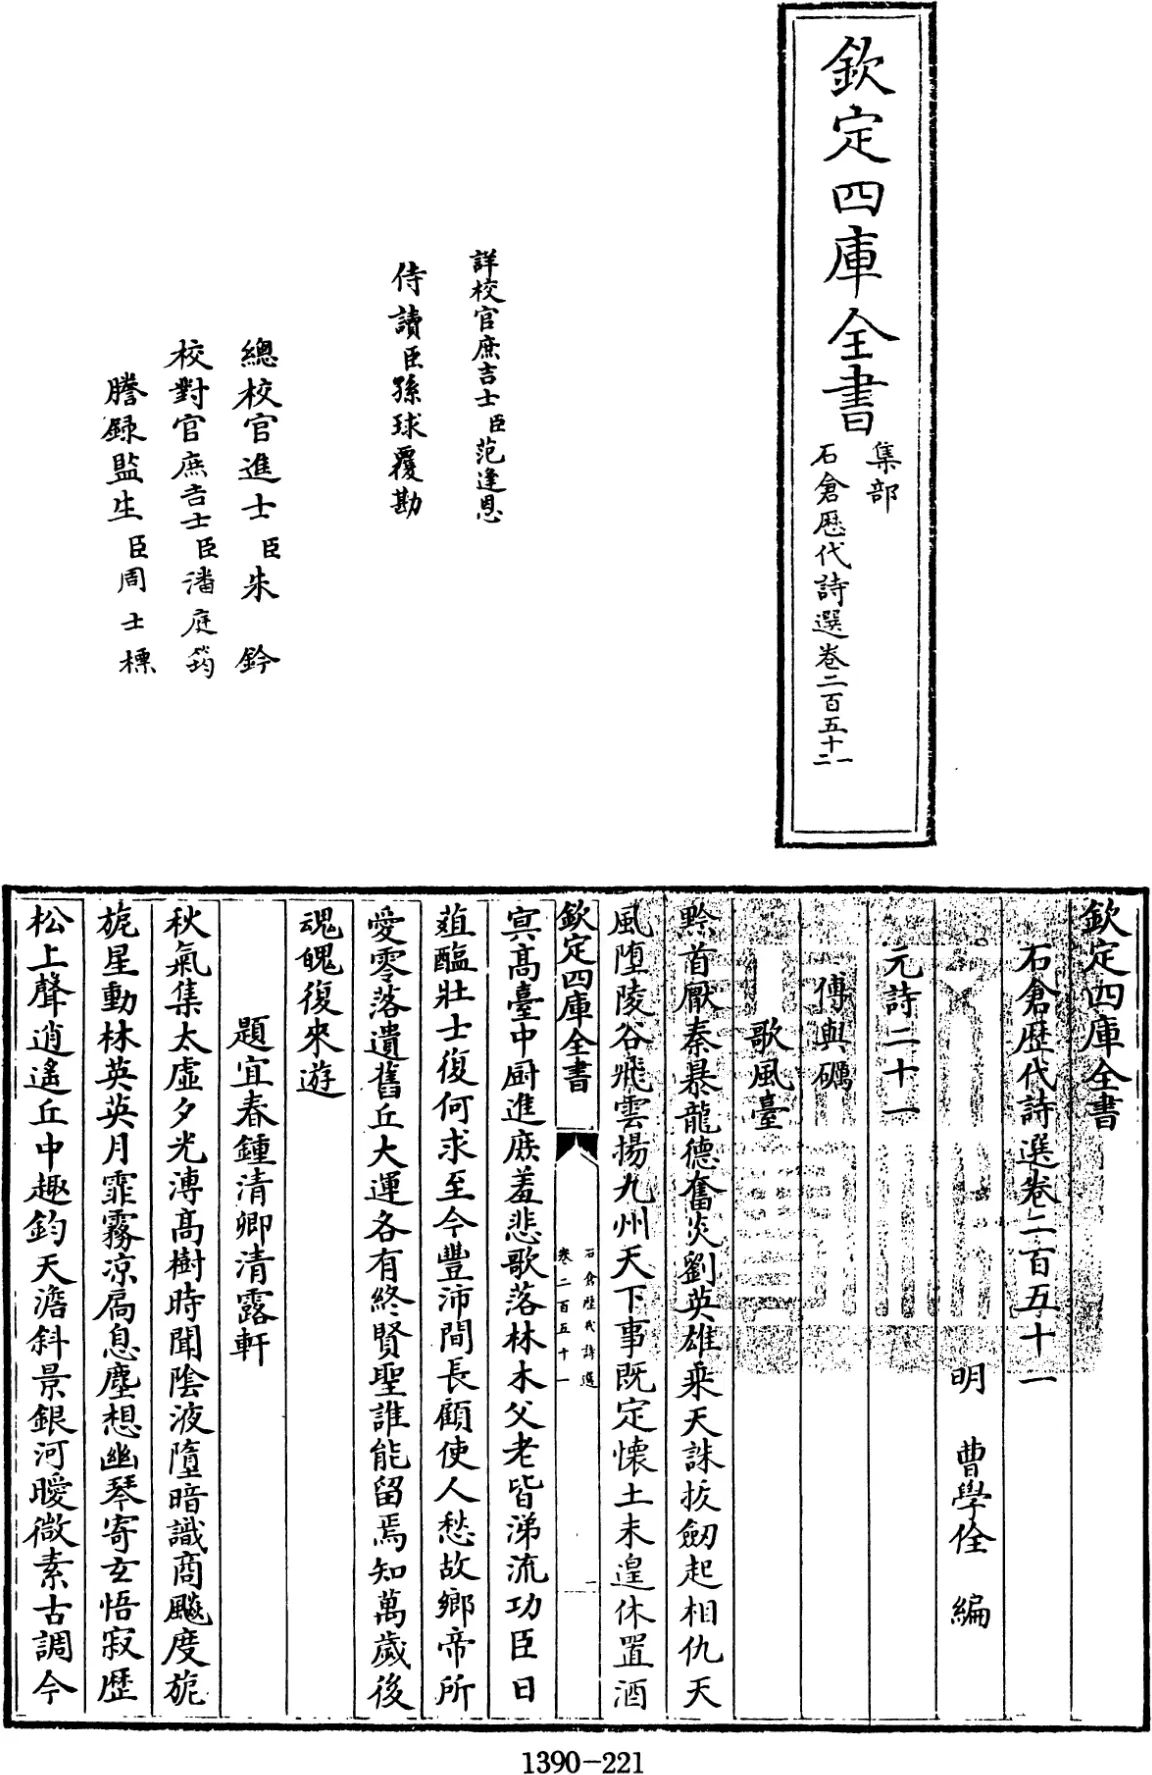 欽定四庫全書
集部
石倉歷代詩選卷二百五十一
二
詳校官庶吉士臣范逢恩
侍讀臣孫球覆勘
總校官進士臣朱鈐
校對官庶吉士臣潘庭筠
謄録監生臣周士標
欽定四庫全書
石倉歷代詩選卷二百五十一
明 曹學佺 編
元詩二十一
傅與礪
歌風臺
黔首厭秦暴龍德奮炎劉英雄乘天誅拔劒起相仇天
風墮陵谷飛雲揚九州天下事既定懐土未遑休置酒
欽定四庫全書
石倉歷代詩選
卷二百五十一
一
寘高臺中厨進庶羞悲歌落林木父老皆涕流功臣日
葅醢壯士復何求至今豐沛間長顧使人愁故鄉帝所
愛零落遺舊丘大運各有終賢聖誰能留焉知萬歲後
魂魄復來遊
題宜春鍾清卿清露軒
秋氣集太虛夕光漙髙樹時聞陰液墮暗識商飈度旎
旎星動林英英月霏霧凉扄息塵想幽琴寄玄悟寂歷
松上聲逍遙丘中趣鈞天澹斜景銀河曖微素古調今
1390-221